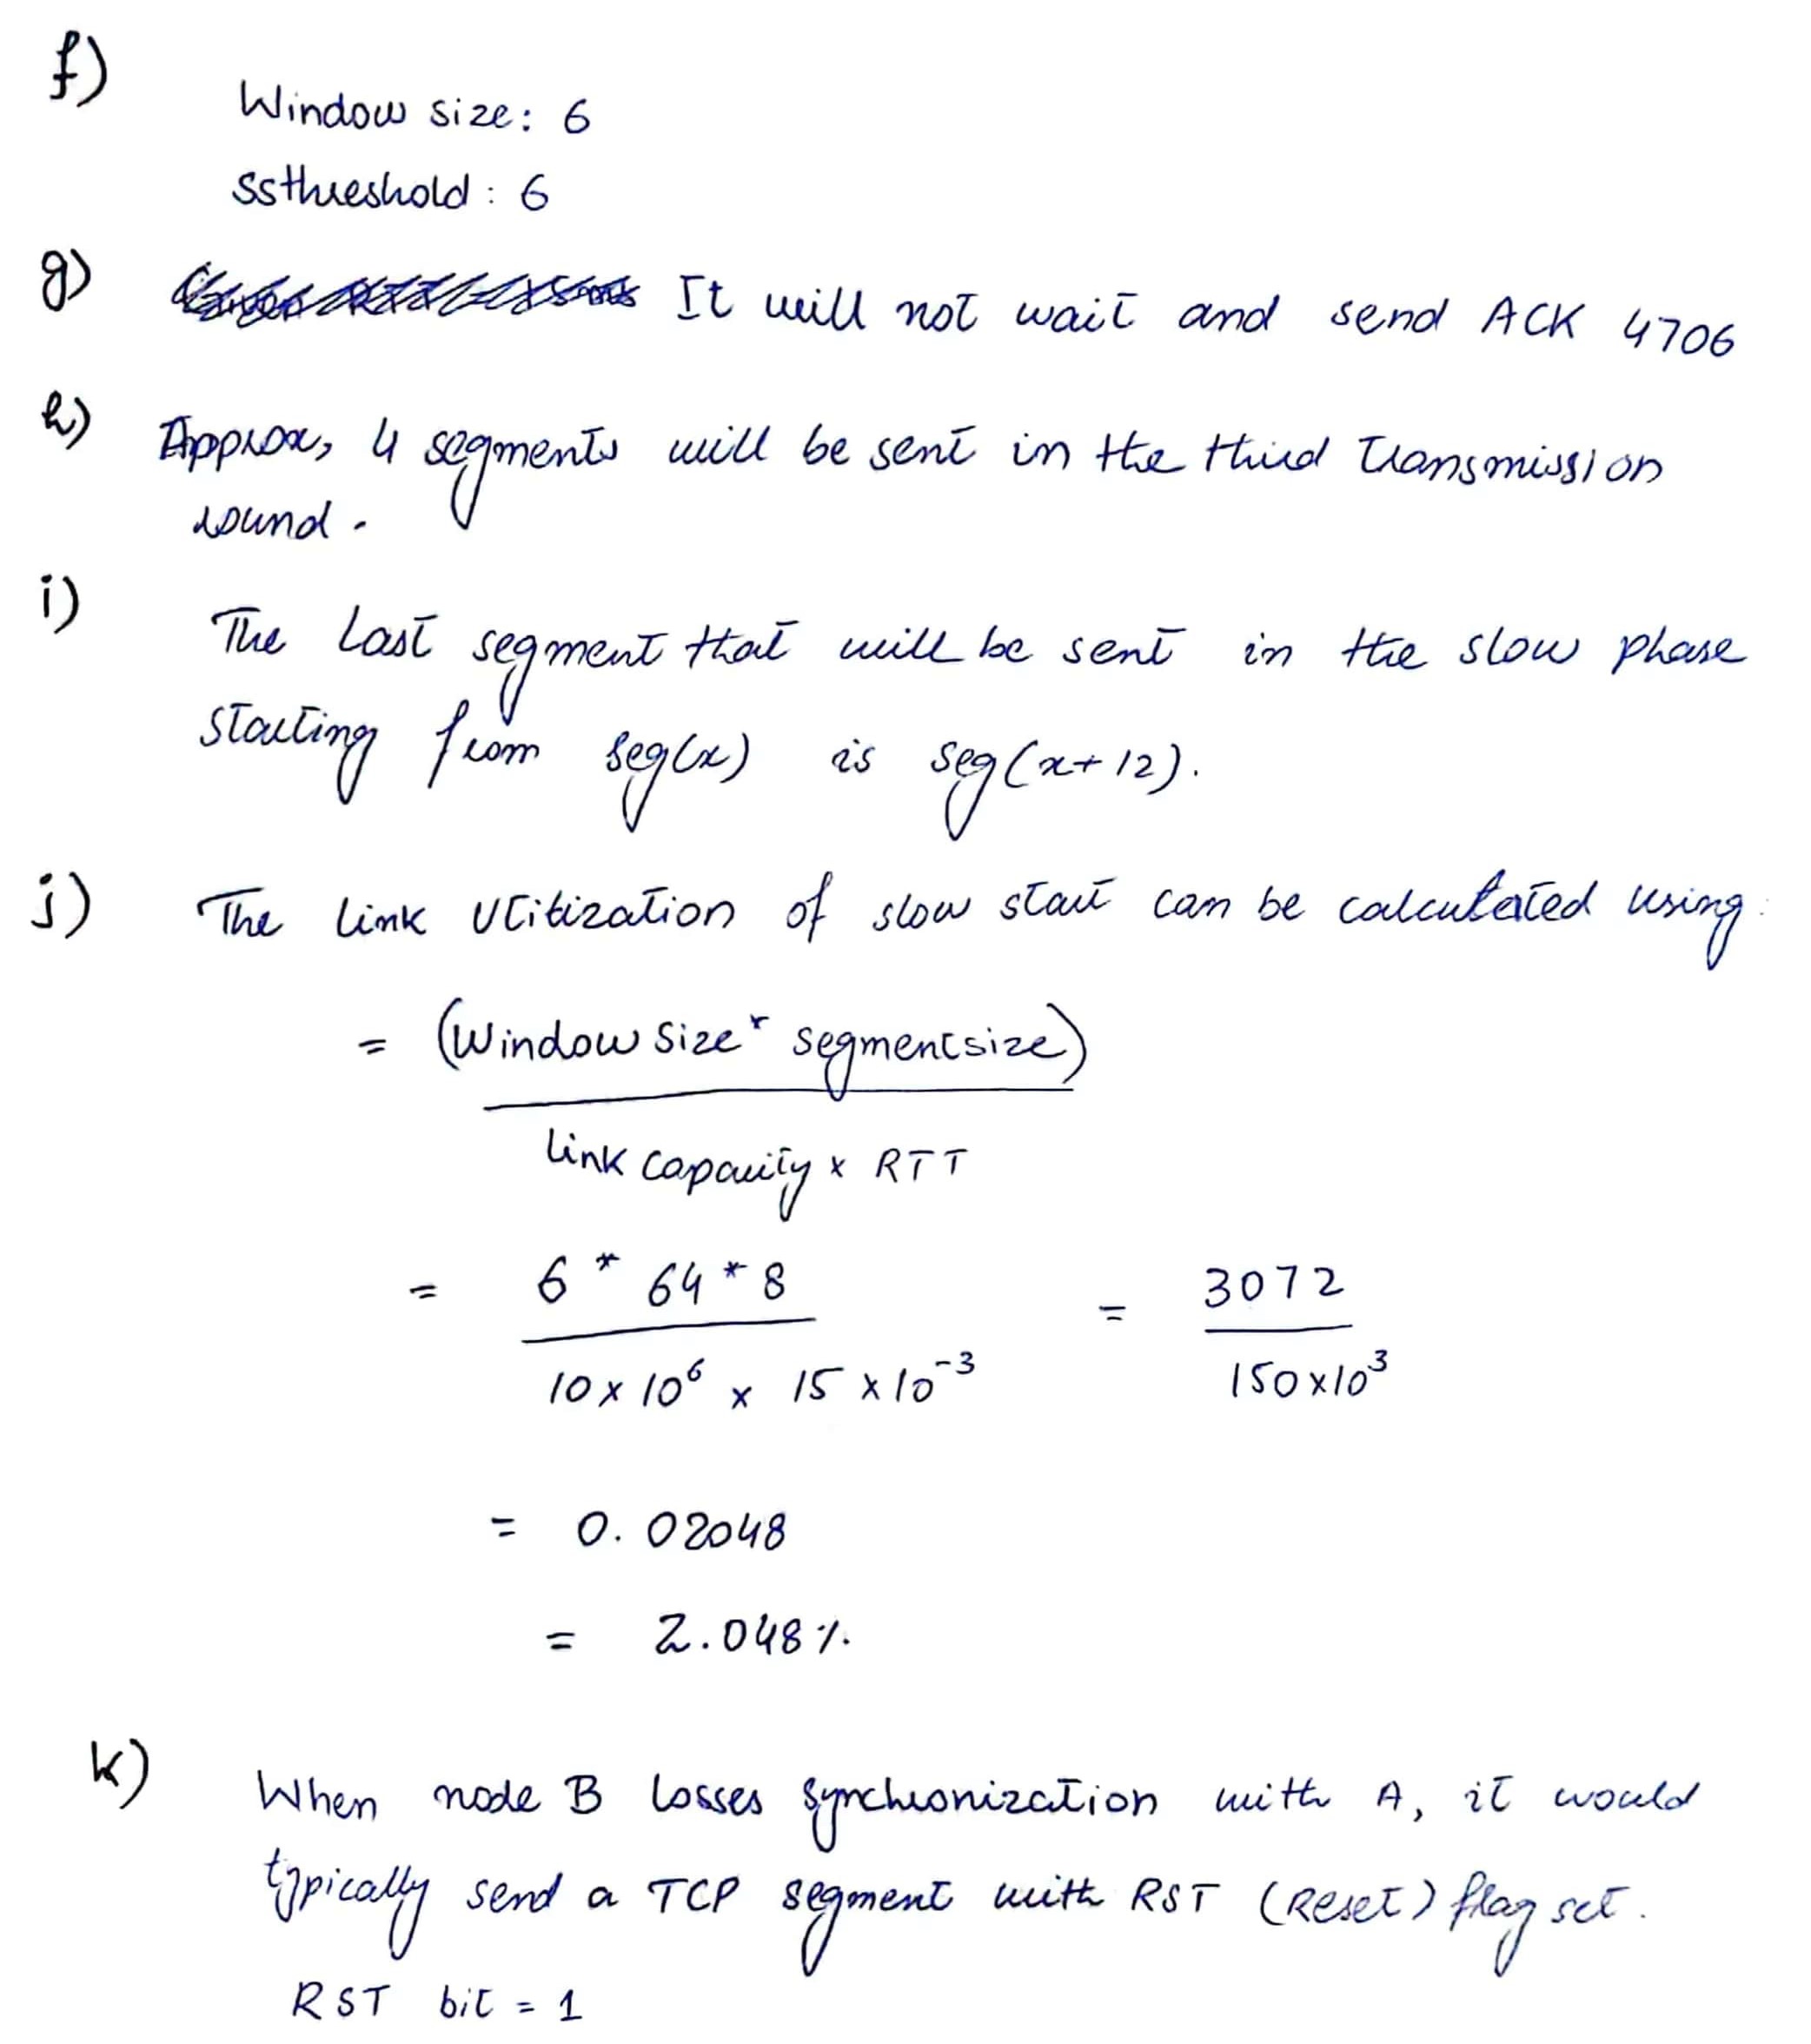 f)
Window size: 6
ssthreshold: 6
g) It will not wait and send ACK 4706
h) Approx, 4 segments will be sent in the third transmission
round.
i)
The last segment that will be sent in the slow phase
starting from seg(x) is seg(x+12).
j) The link utilization of slow start can be calculated using
= (Window size * segmentsize)
link capacity x RTT
= 6 * 64 * 8 = 3072
10 x 10⁶ x 15 x 10⁻³ 150x10³
= 0.02048
= 2.048%
k)
When node B losses synchronization with A, it would
typically send a TCP segment with RST (Reset) flag set.
RST bit = 1